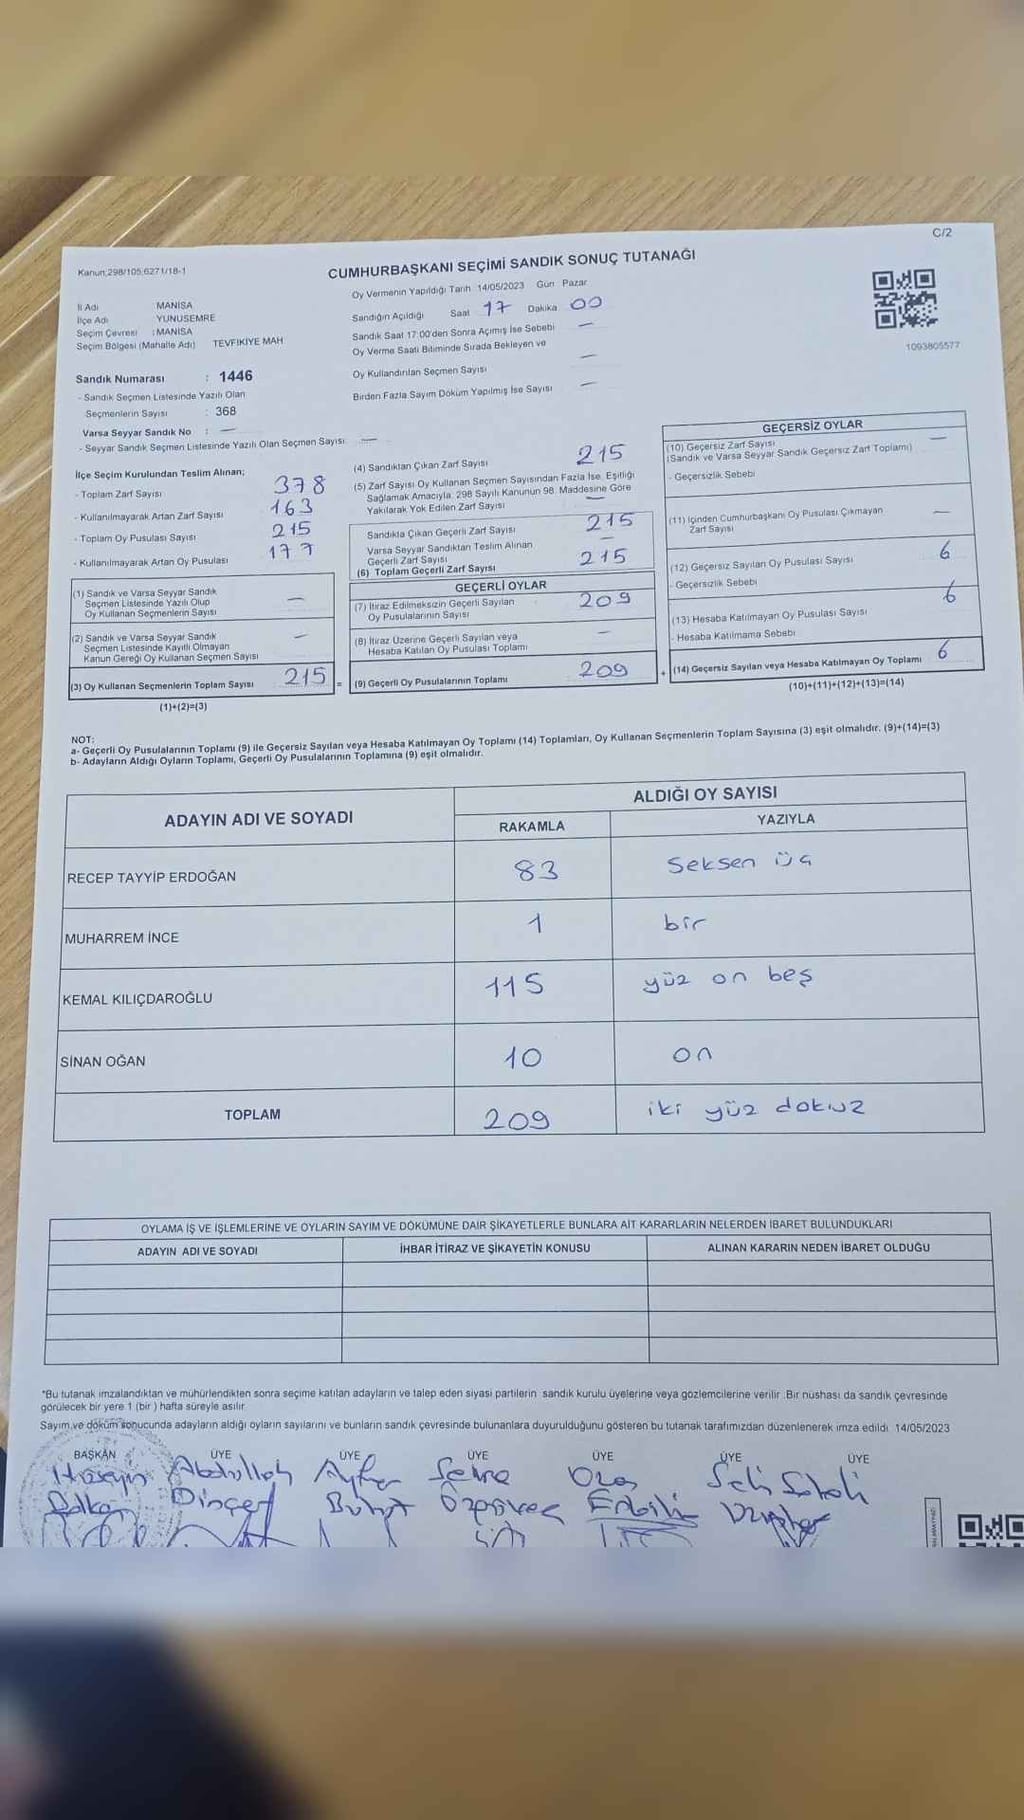 C/2
Kanun;298/105,6271/18-1
CUMHURBAŞKANI SEÇİMİ SANDIK SONUÇ TUTANAĞI
İl Adı MANİSA
İlçe Adı YUNUSEMRE
Seçim Çevresi : MANİSA
Seçim Bölgesi (Mahalle Adı) TEVFİKİYE MAH
Oy Vermenin Yapıldığı Tarih 14/05/2023 Gün Pazar
Sandığın Açıldığı Saat 17 Dakika 00
Sandık Saat 17:00'den Sonra Açımış İse Sebebi —
Oy Verme Saati Bitiminde Sırada Bekleyen ve
Oy Kullandırılan Seçmen Sayısı —
Birden Fazla Sayım Döküm Yapılmış İse Sayısı —
1093805577
Sandık Numarası : 1446
- Sandık Seçmen Listesinde Yazılı Olan
Seçmenlerin Sayısı : 368
Varsa Seyyar Sandık No : —
- Seyyar Sandık Seçmen Listesinde Yazılı Olan Seçmen Sayısı: —
İlçe Seçim Kurulundan Teslim Alınan;
- Toplam Zarf Sayısı 378
- Kullanılmayarak Artan Zarf Sayısı 163
- Toplam Oy Pusulası Sayısı 215
- Kullanılmayarak Artan Oy Pusulası 177
(1) Sandık ve Varsa Seyyar Sandık
Seçmen Listesinde Yazılı Olup
Oy Kullanan Seçmenlerin Sayısı —
(2) Sandık ve Varsa Seyyar Sandık
Seçmen Listesinde Kayıtlı Olmayan
Kanun Gereği Oy Kullanan Seçmen Sayısı —
(3) Oy Kullanan Seçmenlerin Toplam Sayısı 215 =
(1)+(2)=(3)
(4) Sandıktan Çıkan Zarf Sayısı 215
(5) Zarf Sayısı Oy Kullanan Seçmen Sayısından Fazla İse, Eşitliği
Sağlamak Amacıyla, 298 Sayılı Kanunun 98. Maddesine Göre
Yakılarak Yok Edilen Zarf Sayısı —
Sandıkta Çıkan Geçerli Zarf Sayısı 215
Varsa Seyyar Sandıktan Teslim Alınan
Geçerli Zarf Sayısı —
(6) Toplam Geçerli Zarf Sayısı 215
GEÇERLİ OYLAR
(7) İtiraz Edilmeksizin Geçerli Sayılan
Oy Pusulalarının Sayısı 209
(8) İtiraz Üzerine Geçerli Sayılan veya
Hesaba Katılan Oy Pusulası Toplamı —
(9) Geçerli Oy Pusulalarının Toplamı 209 +
GEÇERSİZ OYLAR
(10) Geçersiz Zarf Sayısı
(Sandık ve Varsa Seyyar Sandık Geçersiz Zarf Toplamı) —
- Geçersizlik Sebebi
(11) İçinden Cumhurbaşkanı Oy Pusulası Çıkmayan
Zarf Sayısı —
(12) Geçersiz Sayılan Oy Pusulası Sayısı 6
- Geçersizlik Sebebi
(13) Hesaba Katılmayan Oy Pusulası Sayısı 6
- Hesaba Katılmama Sebebi
(14) Geçersiz Sayılan veya Hesaba Katılmayan Oy Toplamı 6
(10)+(11)+(12)+(13)=(14)
NOT:
a- Geçerli Oy Pusulalarının Toplamı (9) ile Geçersiz Sayılan veya Hesaba Katılmayan Oy Toplamı (14) Toplamları, Oy Kullanan Seçmenlerin Toplam Sayısına (3) eşit olmalıdır. (9)+(14)=(3)
b- Adayların Aldığı Oyların Toplamı, Geçerli Oy Pusulalarının Toplamına (9) eşit olmalıdır.
ADAYIN ADI VE SOYADI
ALDIĞI OY SAYISI
RAKAMLA YAZIYLA
RECEP TAYYİP ERDOĞAN 83 Seksen üç
MUHARREM İNCE 1 bir
KEMAL KILIÇDAROĞLU 115 yüz on beş
SİNAN OĞAN 10 on
TOPLAM 209 iki yüz dokuz
OYLAMA İŞ VE İŞLEMLERİNE VE OYLARIN SAYIM VE DÖKÜMÜNE DAİR ŞİKAYETLERLE BUNLARA AİT KARARLARIN NELERDEN İBARET BULUNDUKLARI
ADAYIN ADI VE SOYADI İHBAR İTİRAZ VE ŞİKAYETİN KONUSU ALINAN KARARIN NEDEN İBARET OLDUĞU
*Bu tutanak imzalandıktan ve mühürlendikten sonra seçime katılan adayların ve talep eden siyasi partilerin sandık kurulu üyelerine veya gözlemcilerine verilir. Bir nüshası da sandık çevresinde
görülecek bir yere 1 (bir) hafta süreyle asılır
Sayım ve döküm sonucunda adayların aldığı oyların sayılarını ve bunların sandık çevresinde bulunanlara duyurulduğunu gösteren bu tutanak tarafımızdan düzenlenerek imza edildi. 14/05/2023
BAŞKAN ÜYE ÜYE ÜYE ÜYE ÜYE ÜYE
Hüseyin Abdullah Ayfer Semra Ozan
Dinçer Bulut